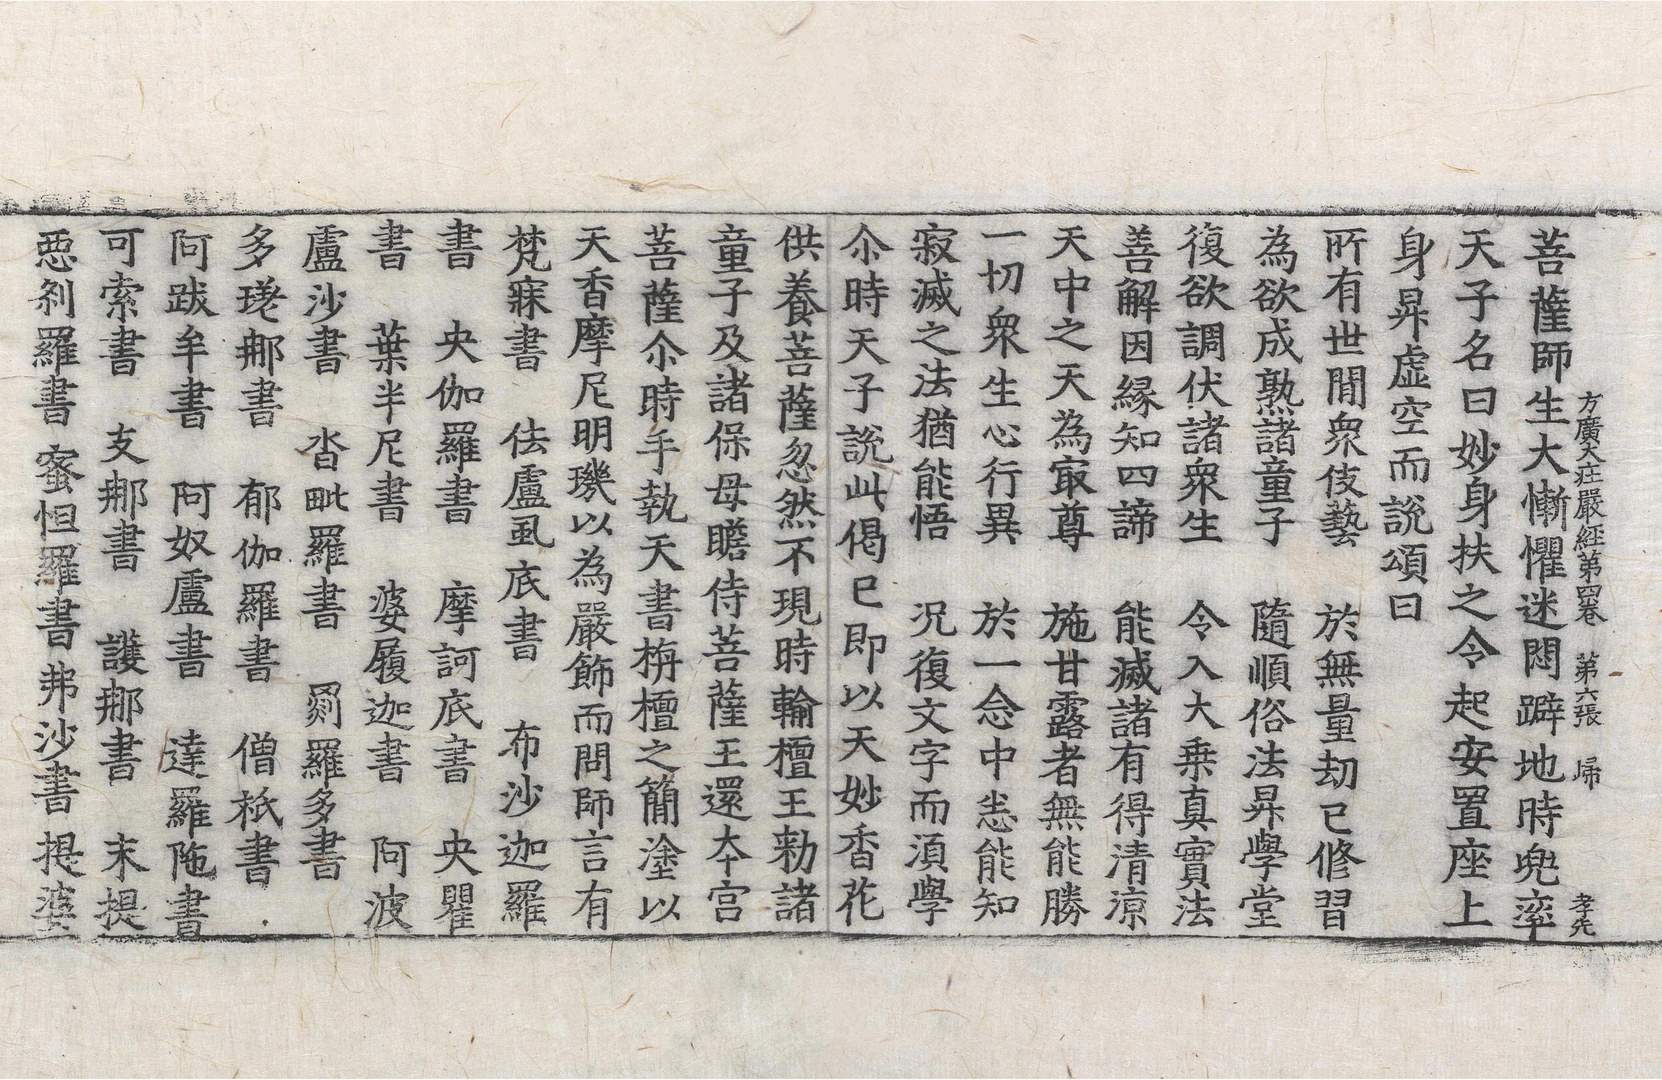 方廣大莊嚴經第四卷 第六張 歸 孝先
菩薩師生大慚懼迷悶躃地時兜率
天子名曰妙身扶之令起安置座上
身昇虛空而說頌曰
所有世間衆伎藝 於無量劫已修習
為欲成熟諸童子 隨順俗法昇學堂
復欲調伏諸衆生 令入大乗真實法
善解因緣知四諦 能滅諸有得清涼
天中之天為㝡尊 施甘露者無能勝
一切衆生心行異 於一念中悉能知
寂滅之法猶能悟 况復文字而湏學
尒時天子說此偈已即以天妙香花
供養菩薩忽然不現時輪檀王勑諸
童子及諸保母瞻侍菩薩王還本宮
菩薩尒時手執天書栴檀之簡塗以
天香摩尼明璣以為嚴飾而問師言有
梵寐書 佉盧虱底書 布沙迦羅
書 央伽羅書 摩訶底書 央瞿
書 葉半尼書 婆履迦書 阿波
盧沙書 沓毗羅書 罽羅多書
多瑳那書 郁伽羅書 僧祇書
阿跋牟書 阿奴盧書 達羅陁書
可索書 支那書 護那書 末提
惡剎羅書 蜜怛羅書 弗沙書 提婆